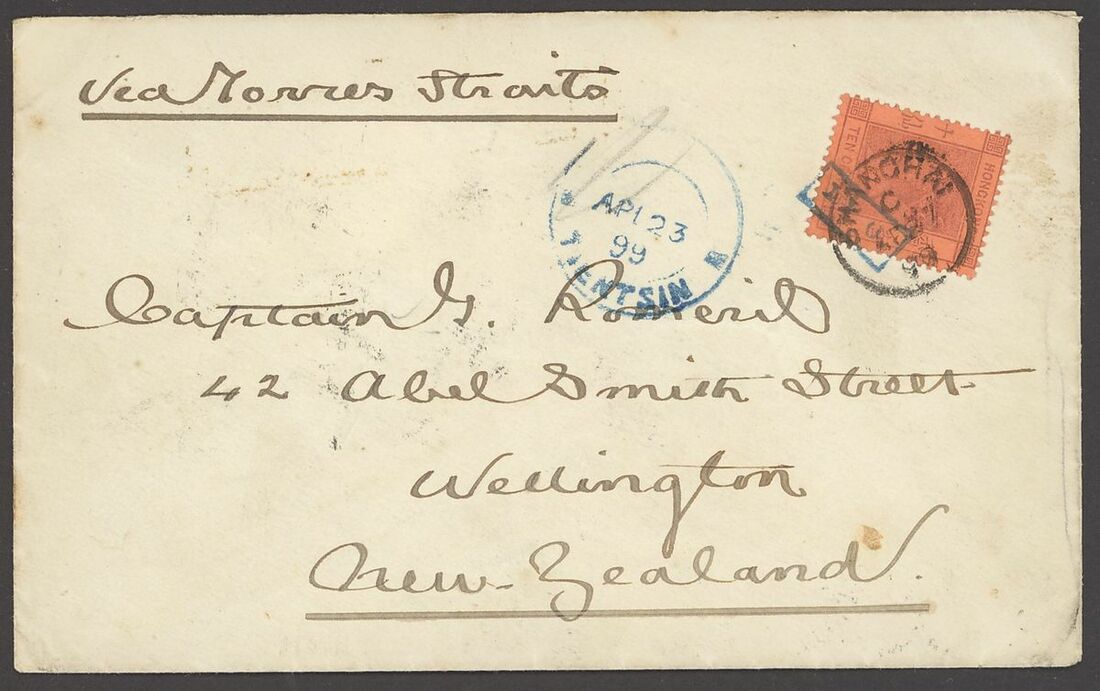 Via Torres Straits
APL 23
99
TIENTSIN
TEN C
HONG
SHANGHAI
Captain G. Romeril
42 Abel Smith Street
Wellington
New-Zealand.